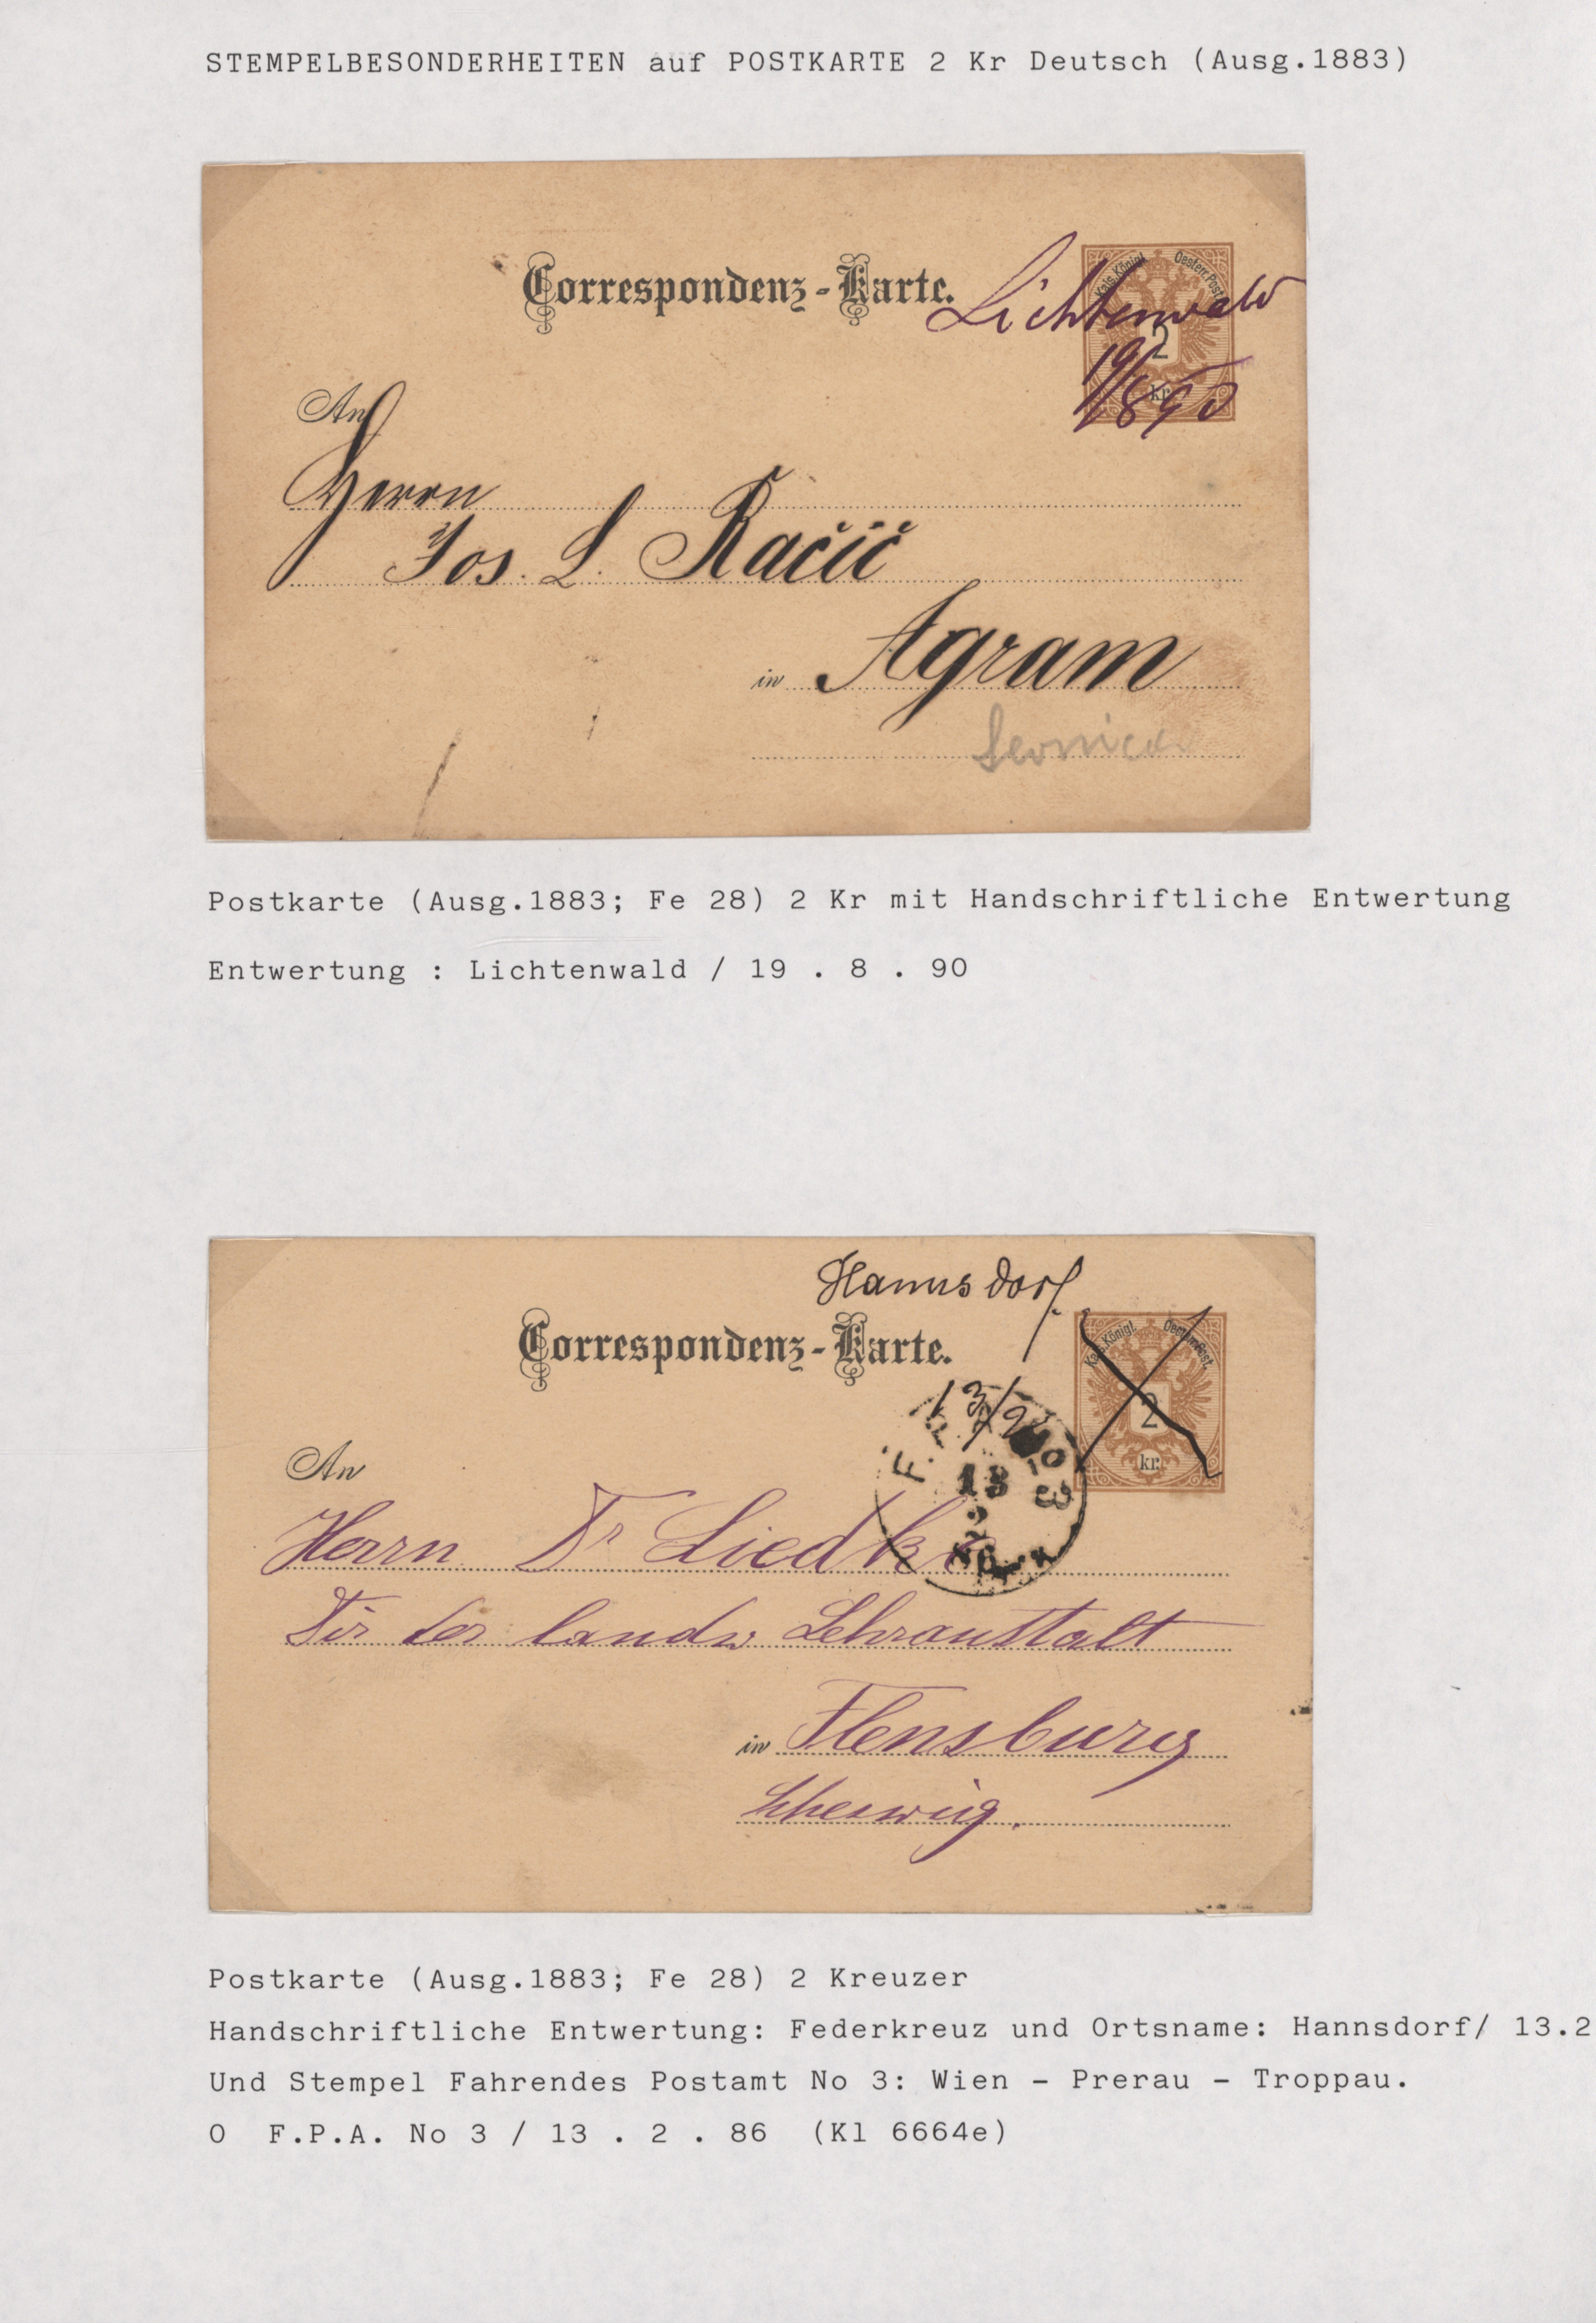 STEMPELBESONDERHEITEN auf POSTKARTE 2 Kr Deutsch (Ausg.1883)
Correspondenz-Karte.
Lichtenwald
Kais. Königl. Oesterr. Post.
2
kr.
19/8 90
An
Herrn
Jos. L. Račić
in Agram
Postkarte (Ausg.1883; Fe 28) 2 Kr mit Handschriftliche Entwertung
Entwertung : Lichtenwald / 19 . 8 . 90
Hannsdorf
Correspondenz-Karte.
Kais. Königl. Oesterr. Post.
2
kr.
13/2
F. P. A. No 3
13
2
86
An
Herrn Dr Liedke
Dir der landw Lehranstalt
in Flensburg
Schleswig.
Postkarte (Ausg.1883; Fe 28) 2 Kreuzer
Handschriftliche Entwertung: Federkreuz und Ortsname: Hannsdorf/ 13.2
Und Stempel Fahrendes Postamt No 3: Wien – Prerau – Troppau.
O F.P.A. No 3 / 13 . 2 . 86 (Kl 6664e)